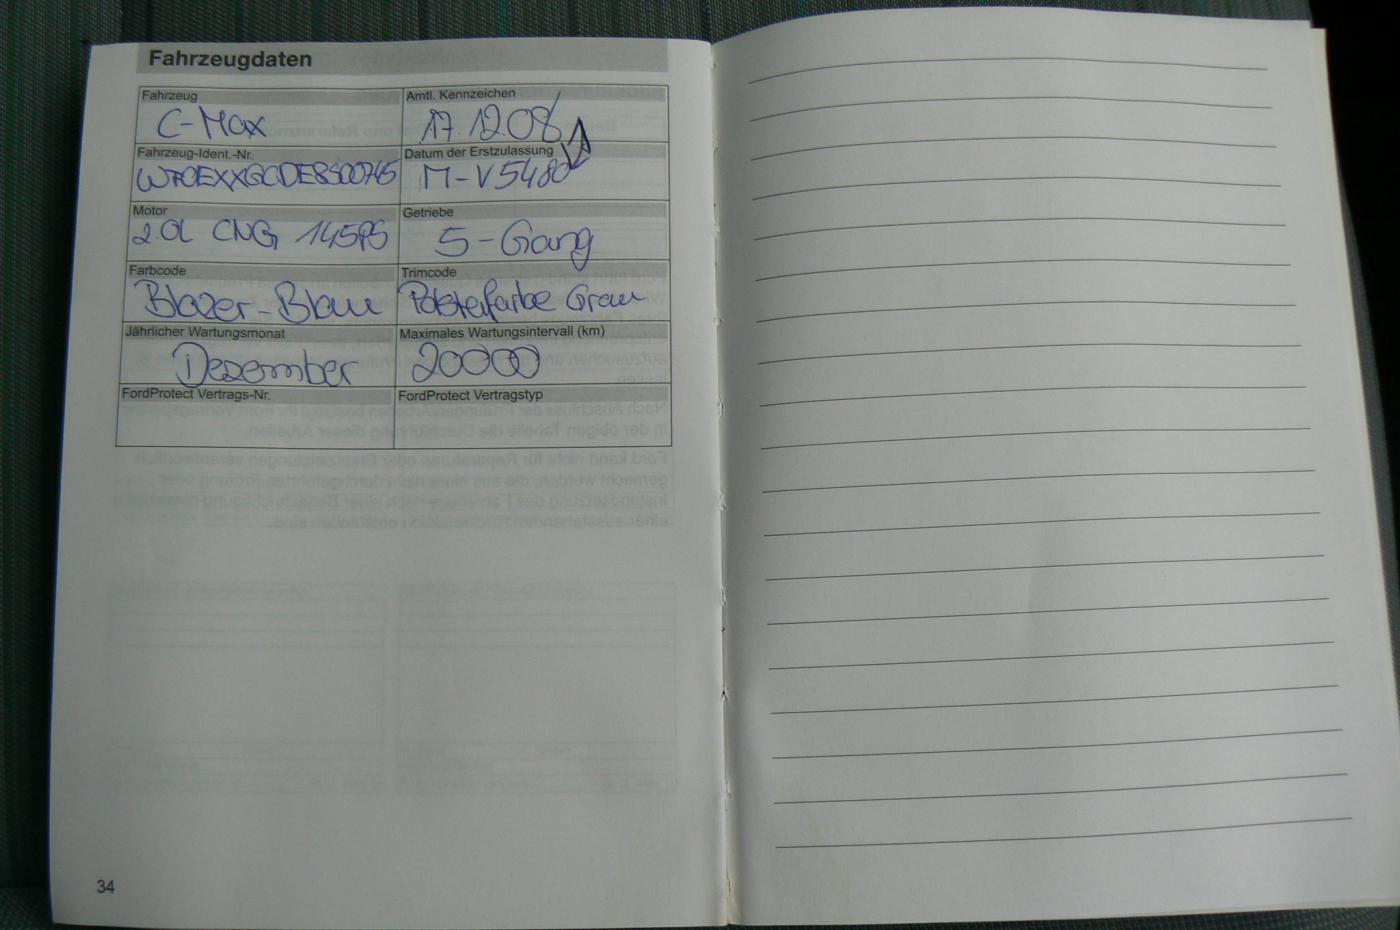 Fahrzeugdaten
Fahrzeug
C-Max
Amtl. Kennzeichen
17.12.08
Fahrzeug-Ident.-Nr.
Datum der Erstzulassung
M-V5480
Motor
2.0l CNG 145PS
Getriebe
5-Gang
Farbcode
Blazer-Blau
Trimcode
Polsterfarbe Grau
Jährlicher Wartungsmonat
Dezember
Maximales Wartungsintervall (km)
20000
FordProtect Vertrags-Nr.
FordProtect Vertragstyp
34